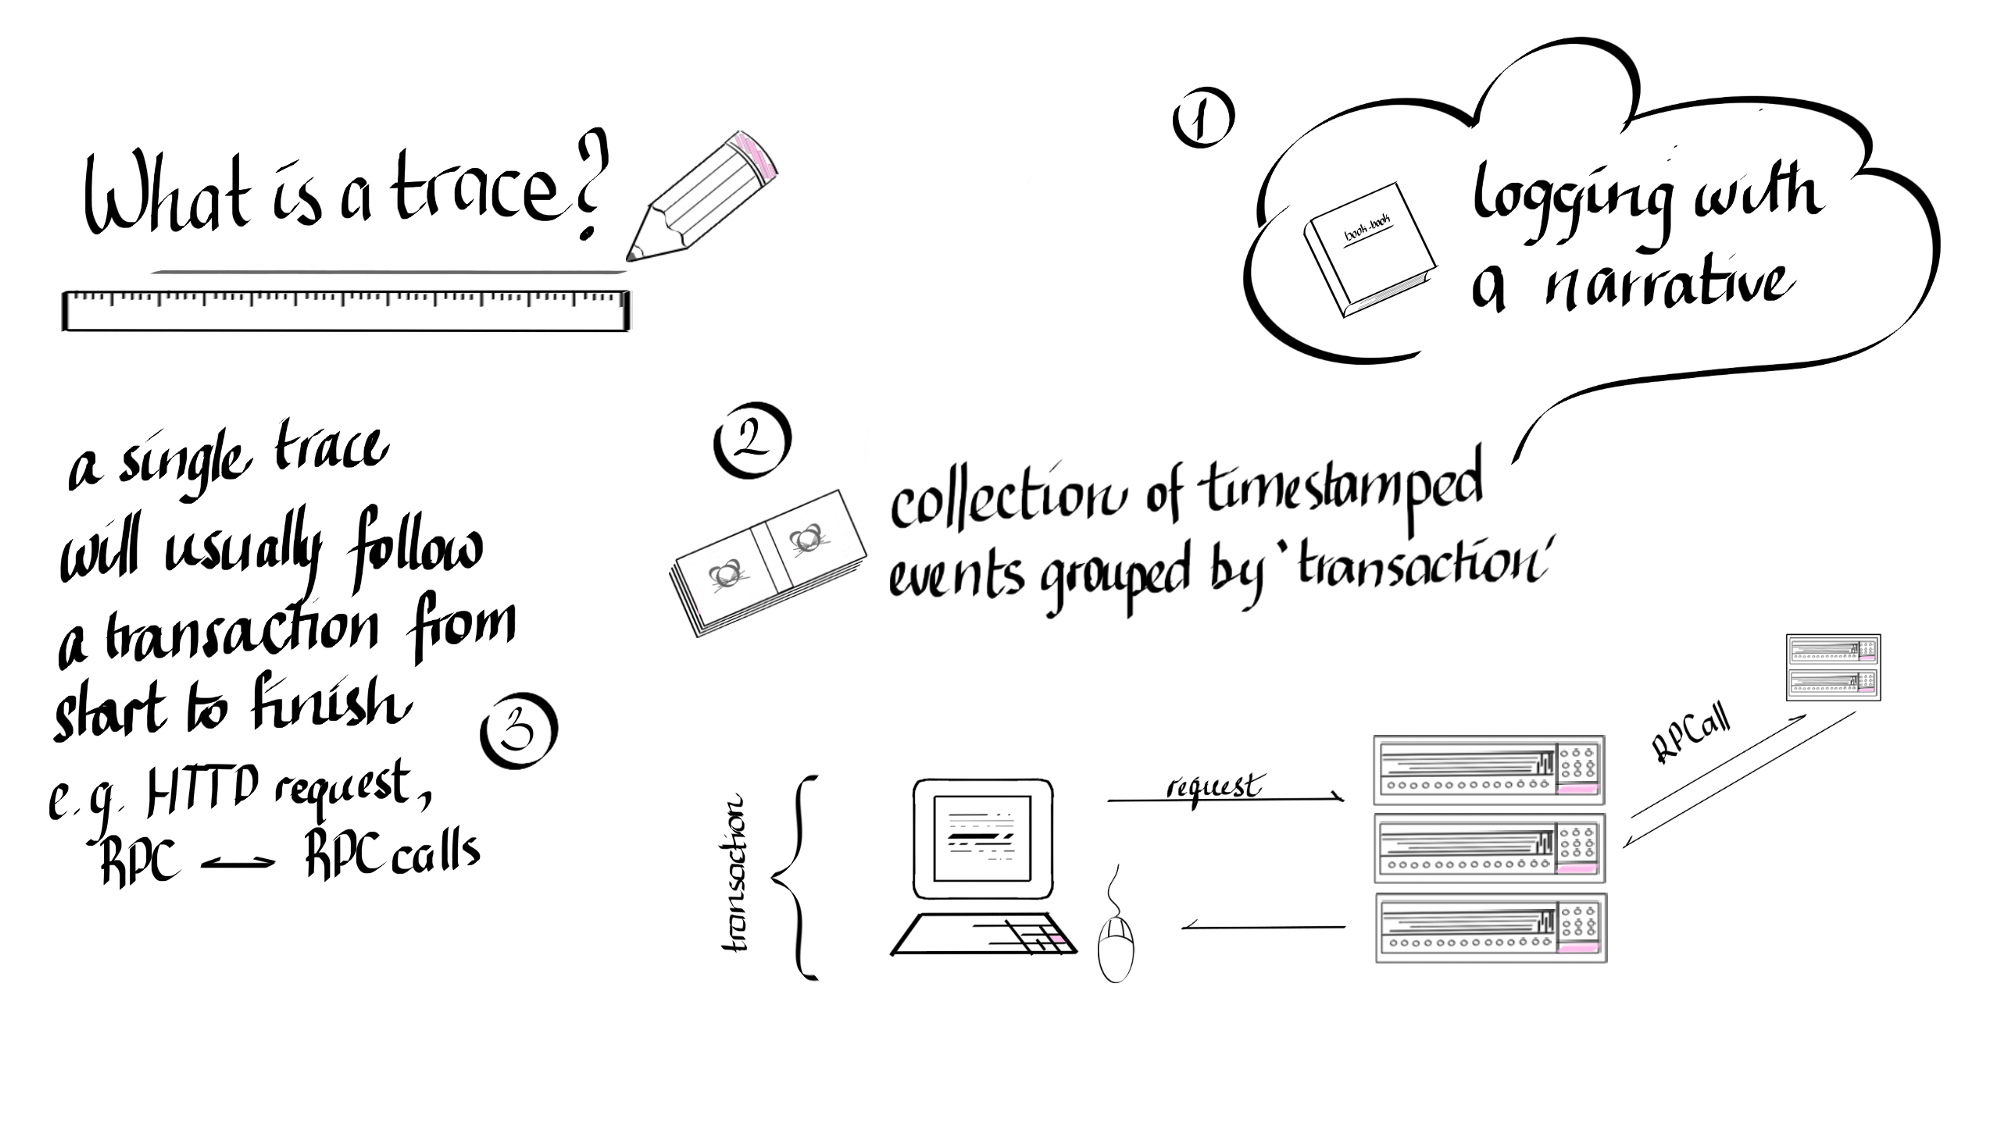 What is a trace?
1
book-book
logging with
a narrative
2
collection of timestamped
events grouped by 'transaction'
a single trace
will usually follow
a transaction from
start to finish
3
e.g. HTTP request,
RPC ↔ RPC calls
transaction
request
RPCall